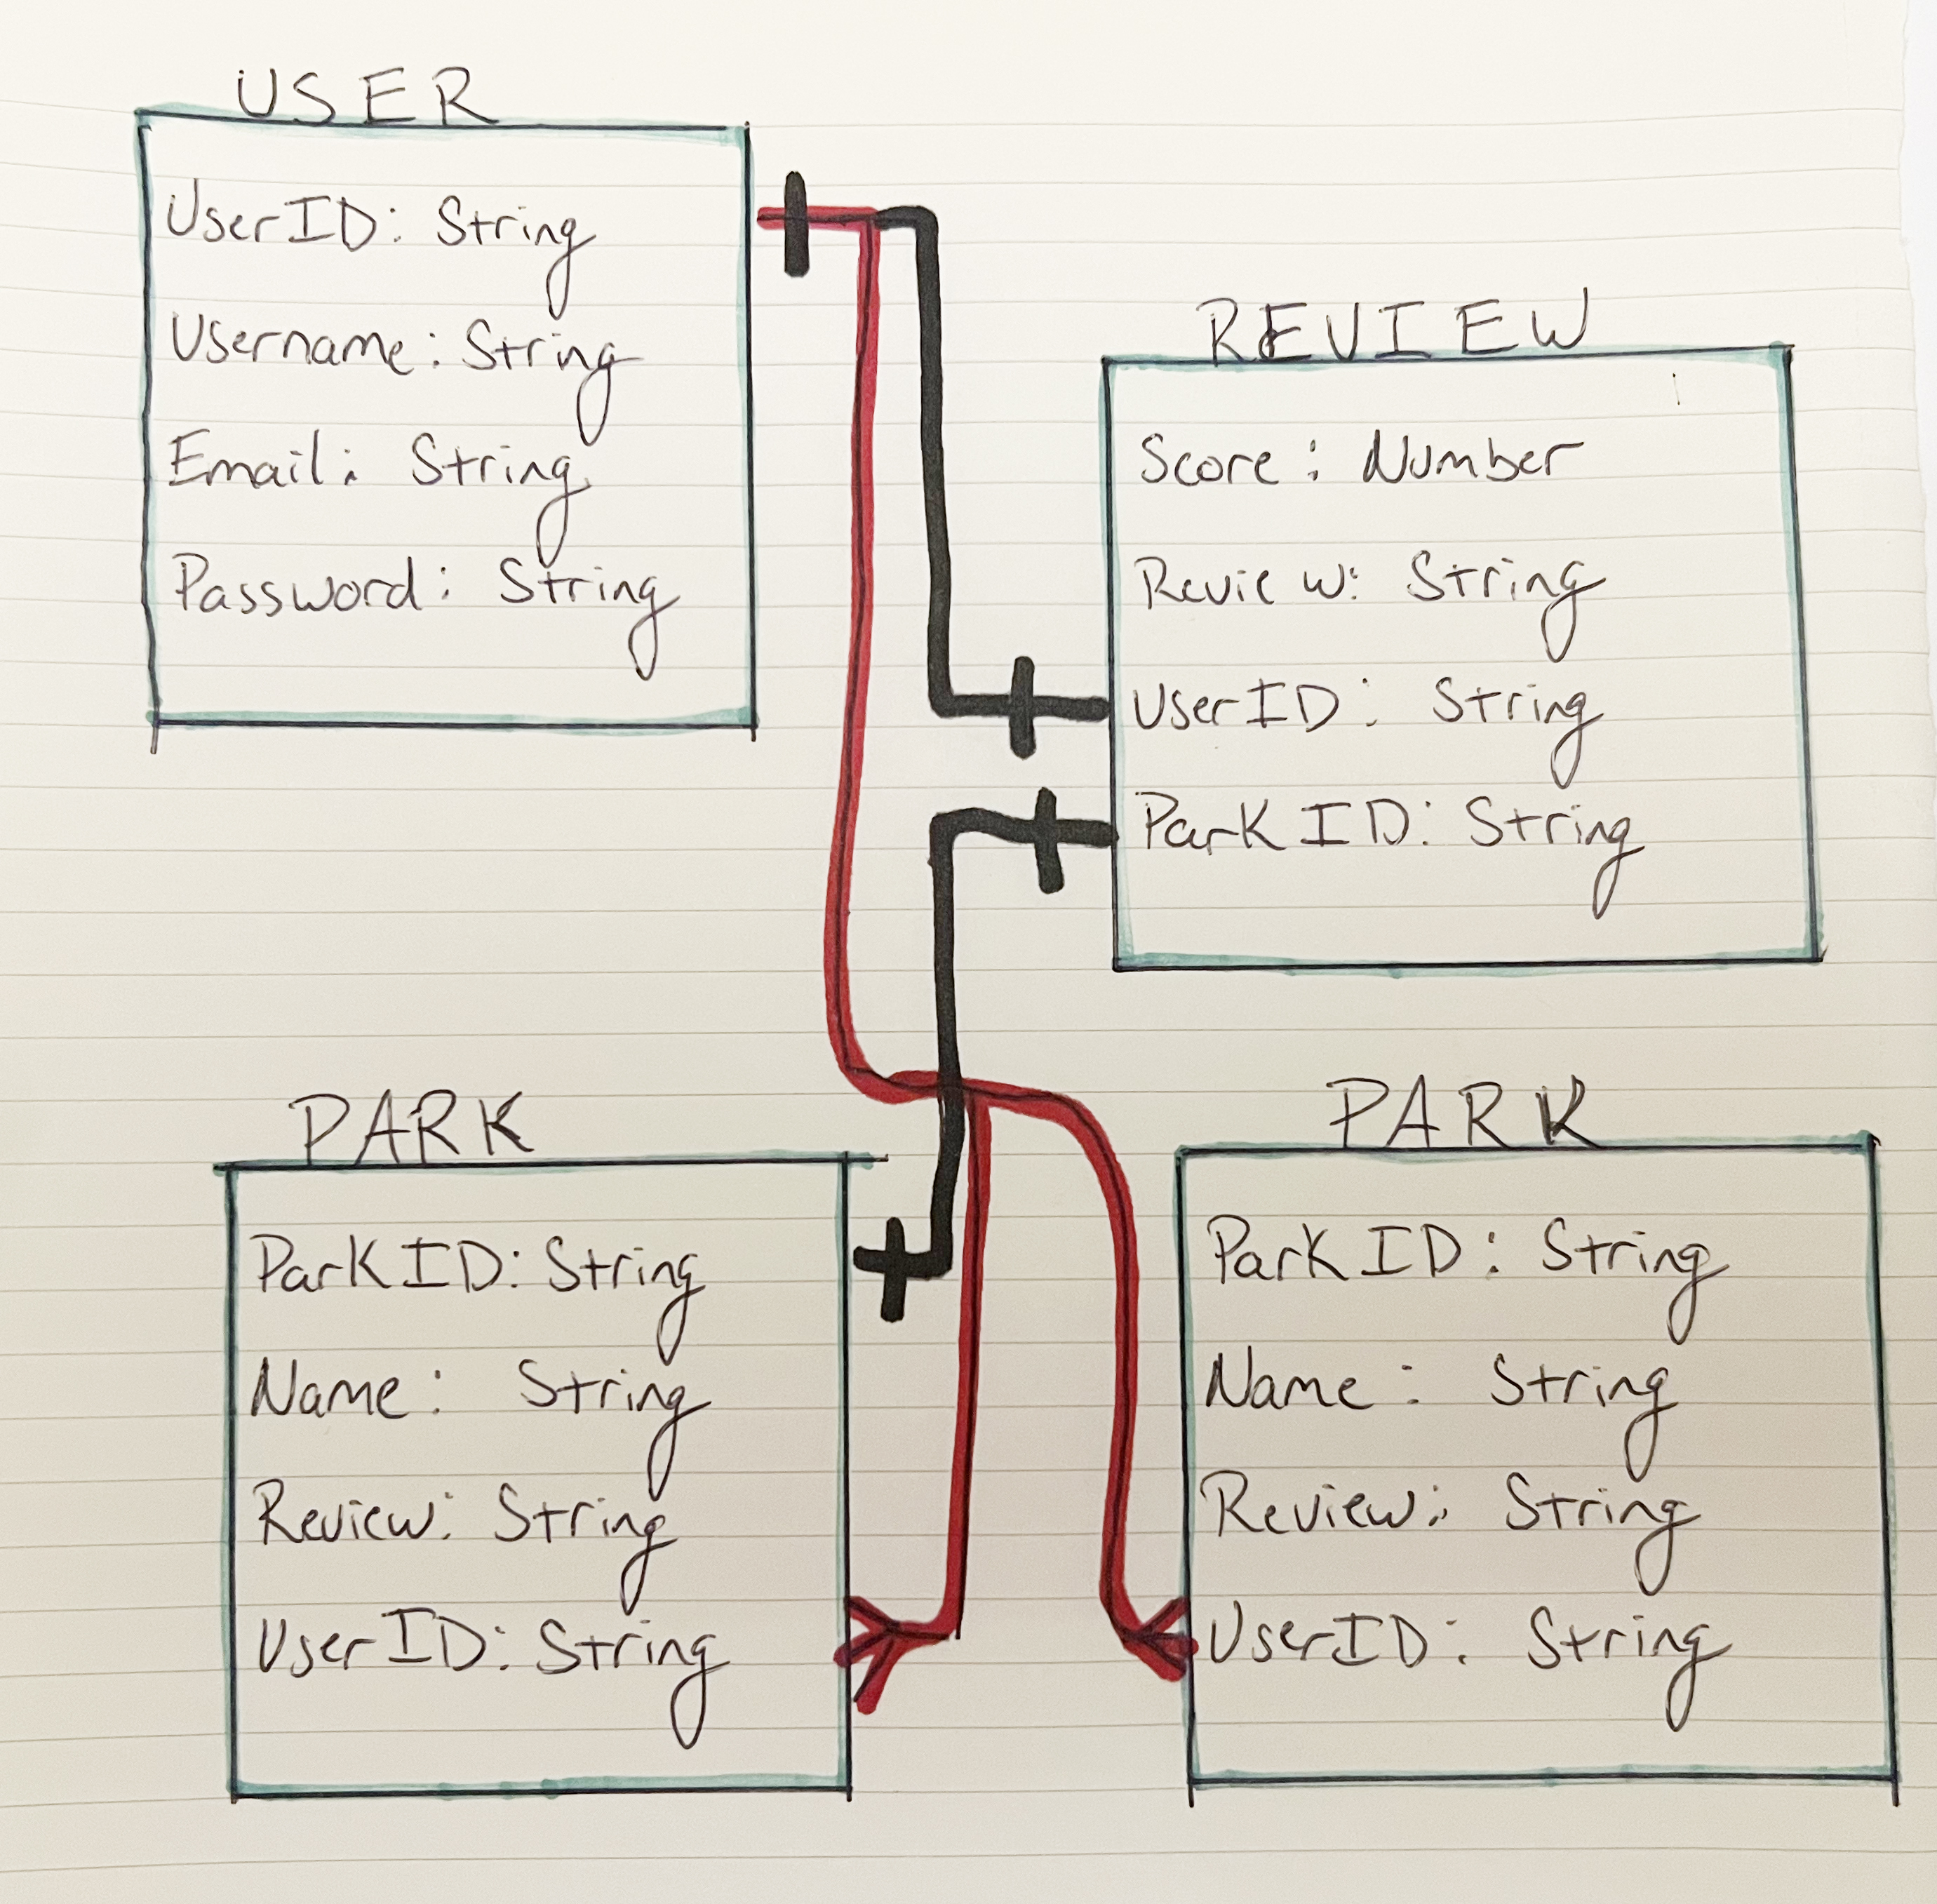 USER
UserID: String
Username: String
Email: String
Password: String
REVIEW
Score: Number
Review: String
UserID: String
ParkID: String
PARK
ParkID: String
Name: String
Review: String
UserID: String
PARK
ParkID: String
Name: String
Review: String
UserID: String